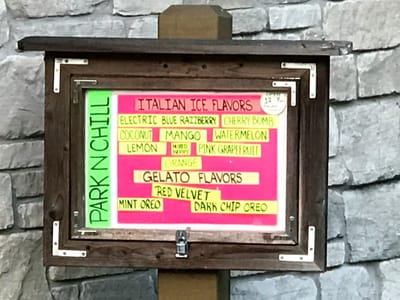 PARK N CHILL
ITALIAN ICE FLAVORS
ELECTRIC BLUE RAZZBERRY CHERRY BOMB
COCONUT MANGO WATERMELON
LEMON MIXED BERRY PINK GRAPEFRUIT
ORANGE
GELATO FLAVORS
RED VELVET
MINT OREO DARK CHIP OREO